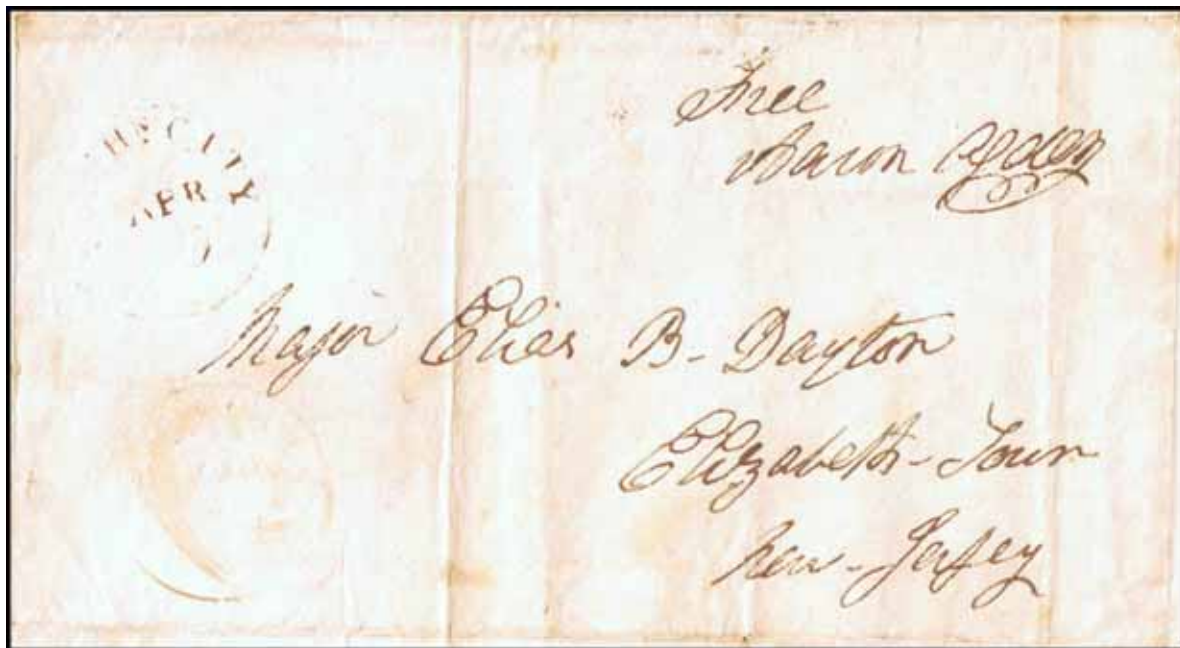 Free
Aaron Ogden
APR
Major Elias B- Dayton
Elizabeth-Town
New-Jersey